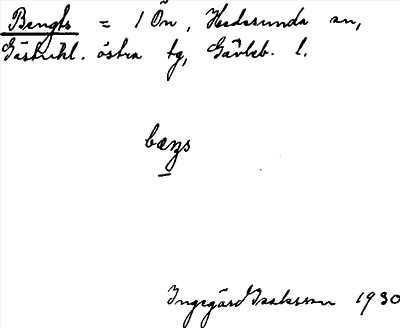 Bengts = 1 Ön, Hedesunda sn,
Gästrikl. östra tg, Gävleb. l.
bæŋs
Ingegärd Isaksson 1930